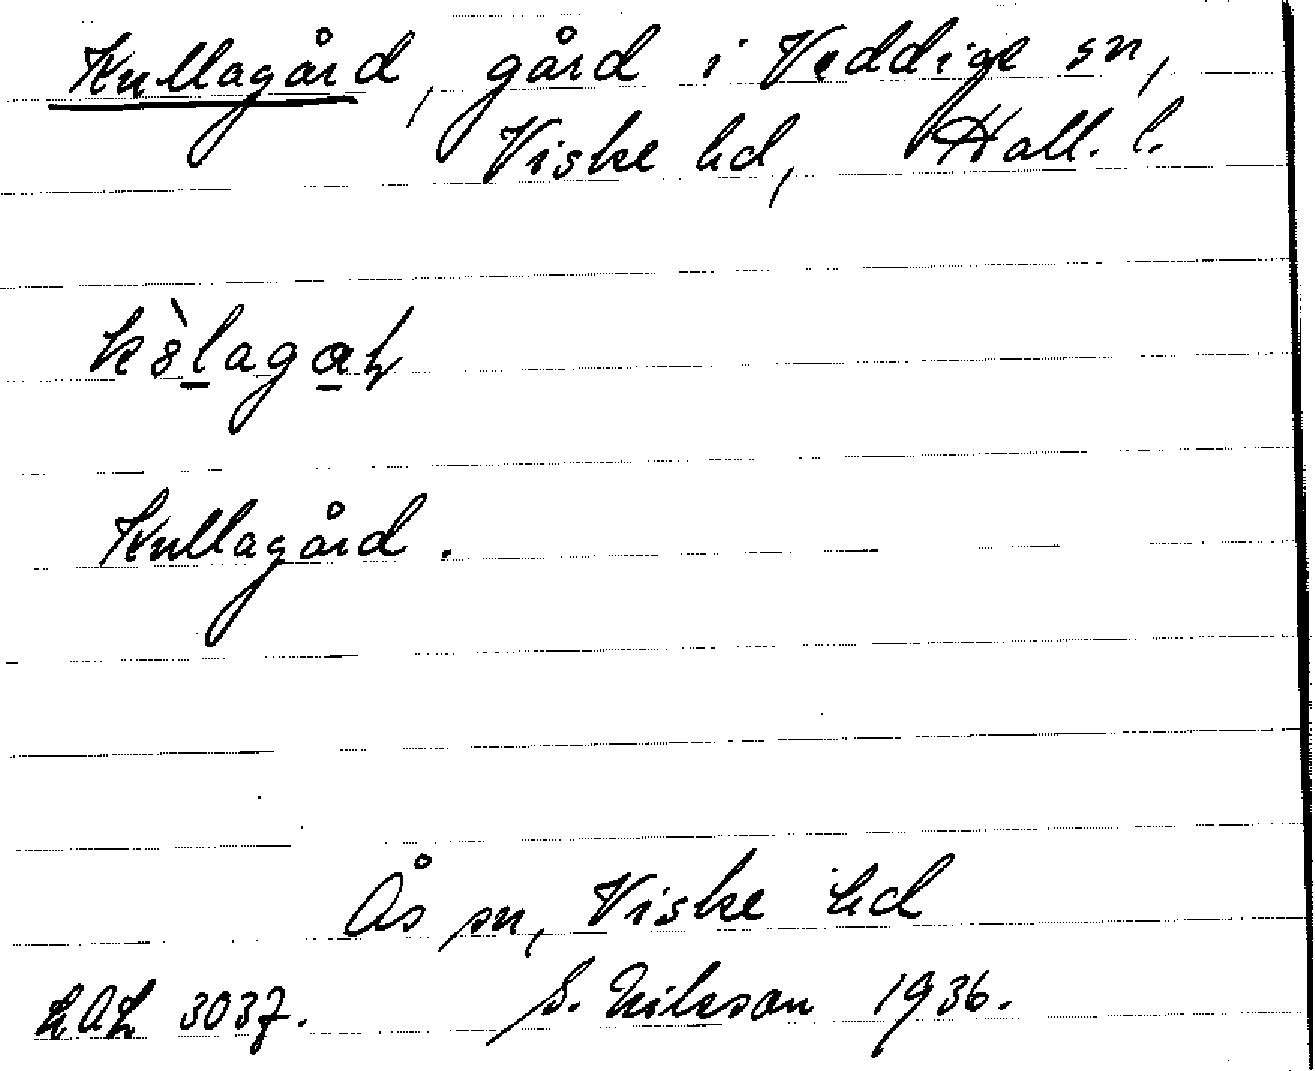 Kullagård, gård i Veddige sn,
Viske hd, Hall. l.
Kullagård.
Ås sn, Viske hd
LAL 3037. S. Nilsson 1936.